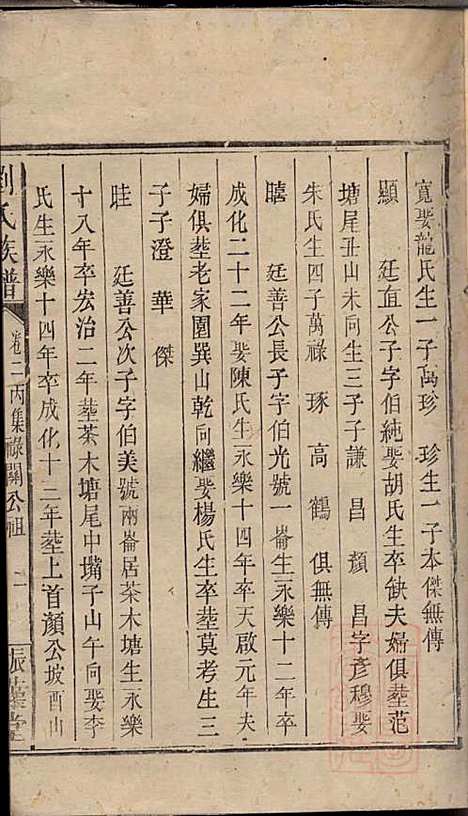 寬娶龍氏生一子萬珍　珍生一子本傑無傳
顯　廷直公子字伯純娶胡氏生卒缺夫婦俱塟范
塘尾丑山未向生三子子謙　昌　顏　昌字彥穆娶
朱氏生四子萬祿　琢　高　鶴　俱無傳
暿　廷善公長子字伯光號一崙生永樂十二年卒
成化二十二年娶陳氏生永樂十四年卒天啟元年夫
婦俱塟老家園巽山乾向繼娶楊氏生卒塟莫考生三
子子澄　華　傑
畦　廷善公次子字伯美號兩崙居茶木塘生永樂
十八年卒宏治二年塟茶木塘尾中嘴子山午向娶李
氏生永樂十四年卒成化十三年塟上首顏公坡酉山
劉氏族譜　卷二丙集祿開公祖　一　振藻堂